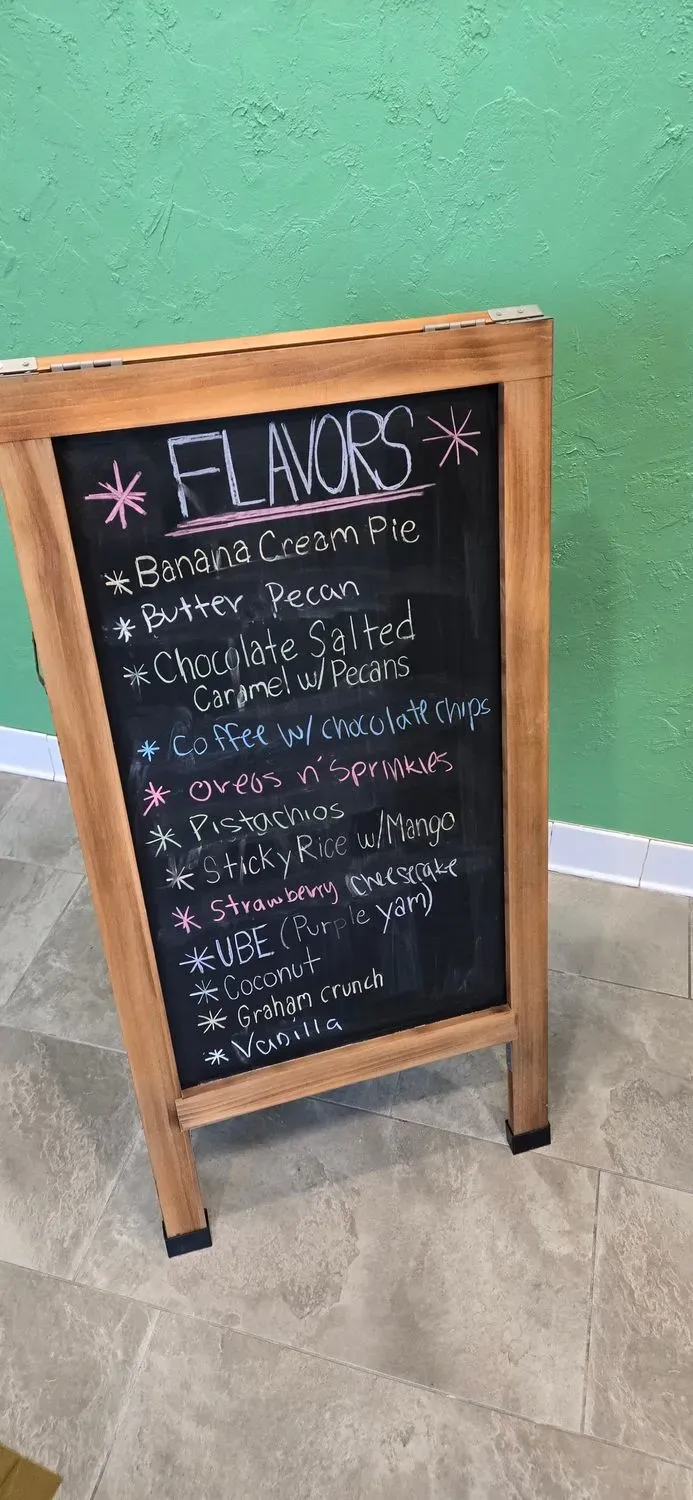 FLAVORS
* Banana Cream Pie
* Butter Pecan
* Chocolate Salted
Caramel w/ Pecans
* Coffee w/ chocolate chips
* oreos n' Sprinkles
* Pistachios
* Sticky Rice w/ Mango
* Strawberry Cheesecake
* UBE (Purple yam)
* Coconut
* Graham crunch
* Vanilla